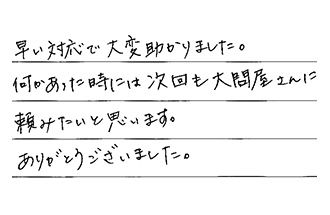 早い対応で大変助かりました。
何かあった時には次回も大問屋さんに
頼みたいと思います。
ありがとうございました。